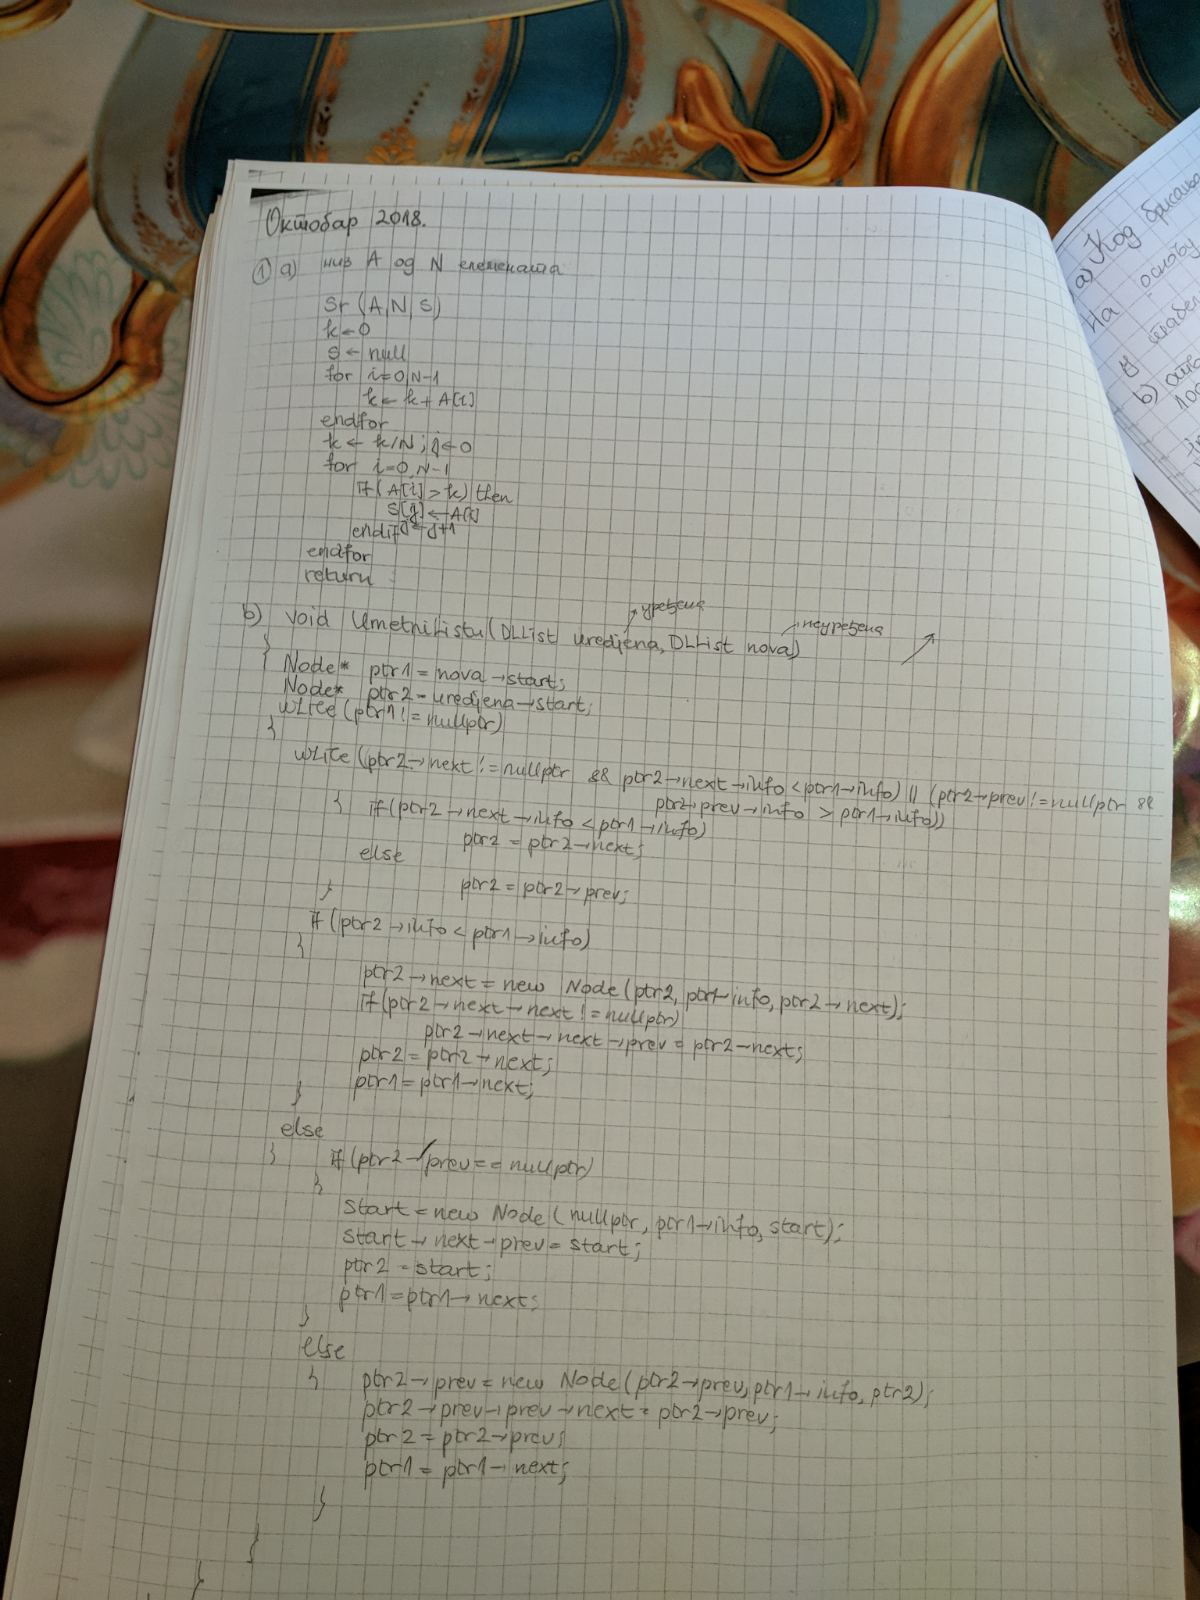 Октобар 2018.
① a) низ A од N елемената
Sr (A, N, S)
k ← 0
s ← null
for i=0, N-1
k ← k + A[i]
endfor
k ← k/N; j ← 0
for i=0, N-1
if (A[i] > k) then
S[j] ← A[i]
j ← j+1
endif
endfor
return
b) void UmetniListu (DLList uredjena, DLList nova)
уређена
неуређена
{
Node* ptr1 = nova → start;
Node* ptr2 = uredjena → start;
while (ptr1 != nullptr)
{
while (ptr2 → next != nullptr && ptr2 → next → info < ptr1 → info) || (ptr2 → prev != nullptr &&
ptr2 → prev → info > ptr1 → info))
{ if (ptr2 → next → info < ptr1 → info)
ptr2 = ptr2 → next;
else
ptr2 = ptr2 → prev;
}
if (ptr2 → info < ptr1 → info)
{
ptr2 → next = new Node (ptr2, ptr1 → info, ptr2 → next);
if (ptr2 → next → next != nullptr)
ptr2 → next → next → prev = ptr2 → next;
ptr2 = ptr2 → next;
ptr1 = ptr1 → next;
}
else
{ if (ptr2 → prev == nullptr)
{
start = new Node (nullptr, ptr1 → info, start);
start → next → prev = start;
ptr2 = start;
ptr1 = ptr1 → next;
}
else
{ ptr2 → prev = new Node (ptr2 → prev, ptr1 → info, ptr2);
ptr2 → prev → prev → next = ptr2 → prev;
ptr2 = ptr2 → prev;
ptr1 = ptr1 → next;
}
}
}
a) Код брисања
На основу
у
b)